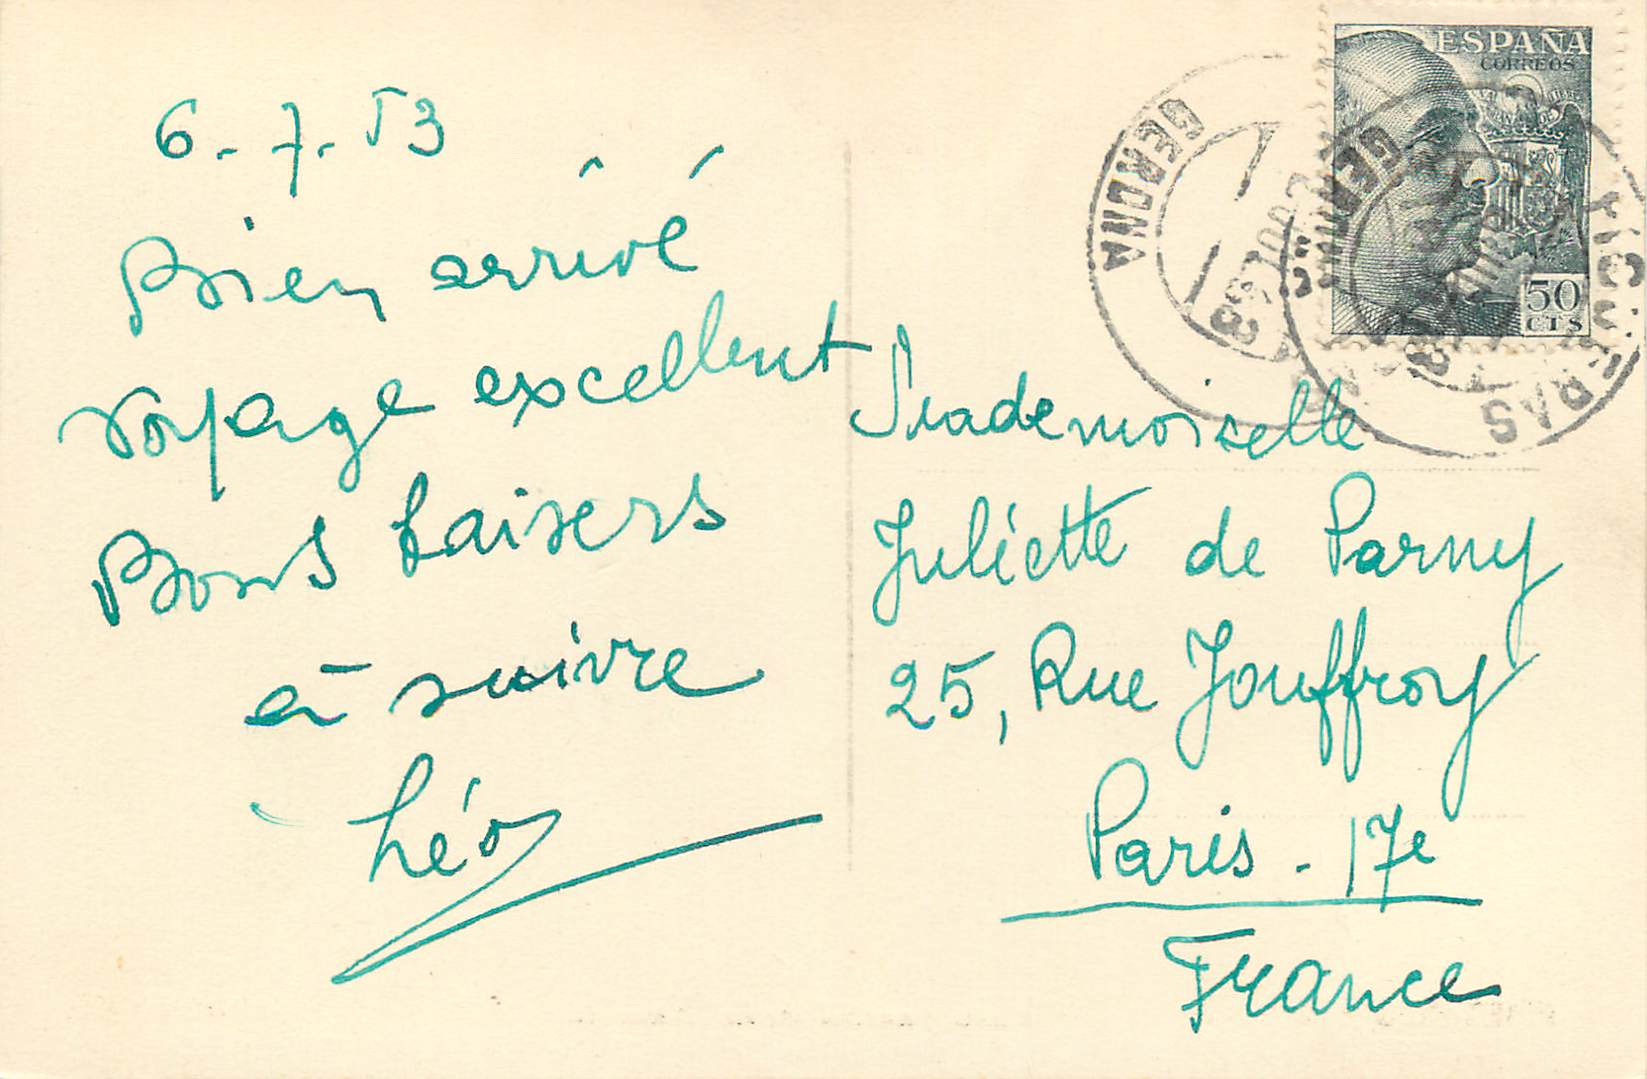 6-7-53
Bien arrivé
voyage excellent
Bons baisers
à suivre
Léo
ESPAÑA
CORREOS
50
CTS
GERONA
GERONA
FIGUERAS
Mademoiselle
Juliette de Parny
25, Rue Jouffroy
Paris - 17e
France